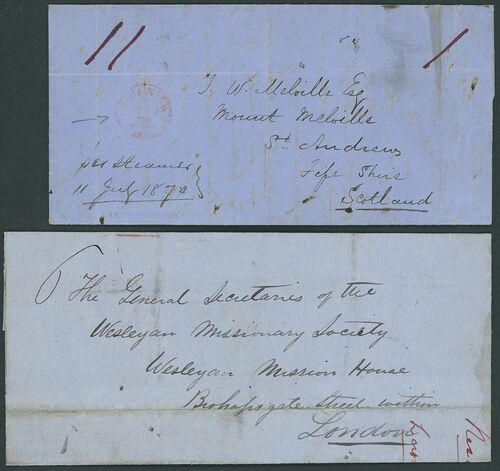 11
1
J. W. Melville Esq
Mount Melville
St. Andrews
Fife Shire
Scotland
per steamer
11 July 1870
6
The General Secretaries of the
Wesleyan Missionary Society
Wesleyan Mission House
Bishopsgate Street within
London